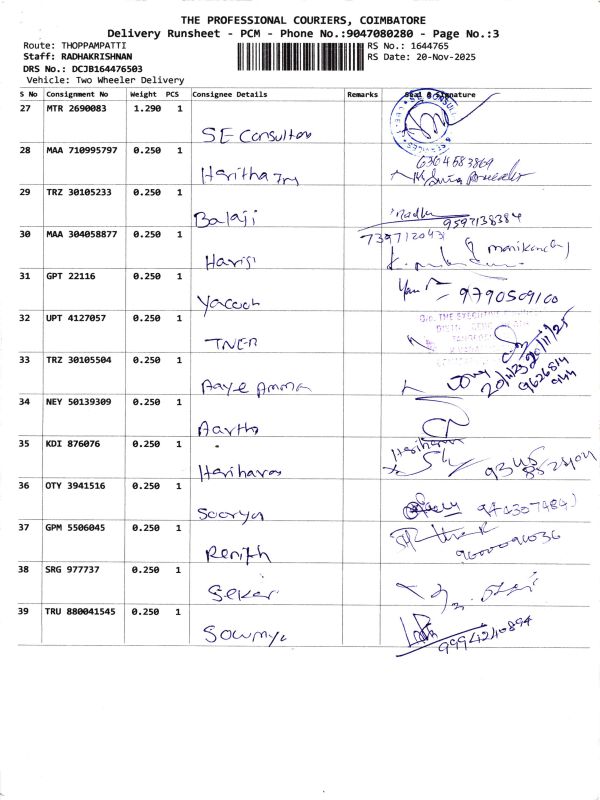 THE PROFESSIONAL COURIERS, COIMBATORE
Delivery Runsheet - PCM - Phone No.:9047080280 - Page No.:3
Route: THOPPAMPATTI RS No.: 1644765
Staff: RADHAKRISHNAN RS Date: 20-Nov-2025
DRS No.: DCJB164476503
Vehicle: Two Wheeler Delivery
S No Consignment No Weight PCS Consignee Details Remarks Seal & Signature
27 MTR 2690083 1.290 1
SE Consultors
28 MAA 710995797 0.250 1 6364583869
Haritha
29 TRZ 30105233 0.250 1
Balaji Madhu 9597138384
30 MAA 304058877 0.250 1 7397120431
Haris Manikandan
31 GPT 22116 0.250 1
Yacoob 9790509100
32 UPT 4127057 0.250 1
TNEB
33 TRZ 30105504 0.250 1 20/11/25
Aaye Amma 9626814
34 NEY 50139309 0.250 1
Aartho
35 KDI 876076 0.250 1 Hariharan
Hariharan
36 OTY 3941516 0.250 1
Soorya
37 GPM 5506045 0.250 1
Renjth 9600091036
38 SRG 977737 0.250 1
Seker
39 TRU 880041545 0.250 1
Sowmya 9994240894